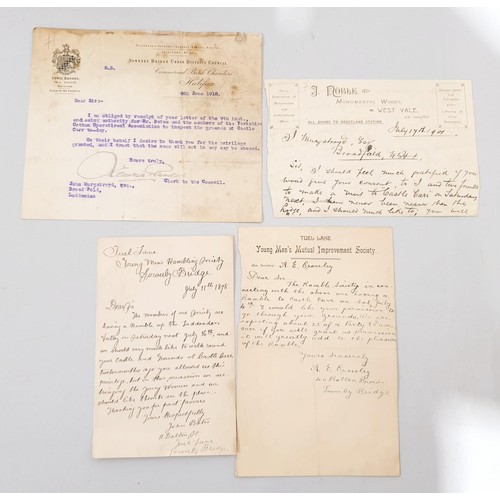 SOWERBY BRIDGE URBAN DISTRICT COUNCIL
Halifax
8th June 1918.
Dear Sir:-
I am obliged by receipt of your letter of the 7th inst.,
and giving authority for Mr. Bates and the members of the Yorkshire
Cotton Operatives' Association to inspect the grounds at Castle
Carr to-day.
On their behalf I desire to thank you for the privilege
granted, and I trust that the same will not in any way be abused.
Yours truly,
Clerk to the Council.
John Murgatroyd, Esq.,
Broad Fold,
Luddenden
J. NOBLE
MONUMENTAL WORKS,
WEST VALE,
July 17th
J Murgatroyd Esq
Broadfold
Sir, I should feel much gratified if you
would give your consent, to I and two friends
to make a visit to Castle Carr on Saturday
next, I have never been nearer than the
Lodge, and I should much like to, you will
Tuel Lane
Young Men Rambling Society
Sowerby Bridge
July 11th 1898
Dear Sir
The members of our Society are
having a Ramble up the Luddenden
Valley on Saturday next July 16th, and
we should very much like to walk round
your Castle and Grounds at Castle Carr
twelvemonths ago you allowed us this
privilege, but on this occasion we are
bringing the young Women and we
should like them to see the place.
Thanking you for past favours
Yours Respectfully
John Bates
Tuel Lane
Sowerby Bridge
TUEL LANE
Young Men's Mutual Improvement Society.
A. E. Crossley
Dear Sir
The Rambling Society in con-
necting with the above are having a
Ramble to Castle Carr on Sat. July
I would like your permission to
go through your Grounds, We are
expecting about 20 of a Party to come
and if you will grant us permission
it will greatly add to the pleasure
of the Ramble
Yours Sincerely
A. E. Crossley
Sowerby Bridge